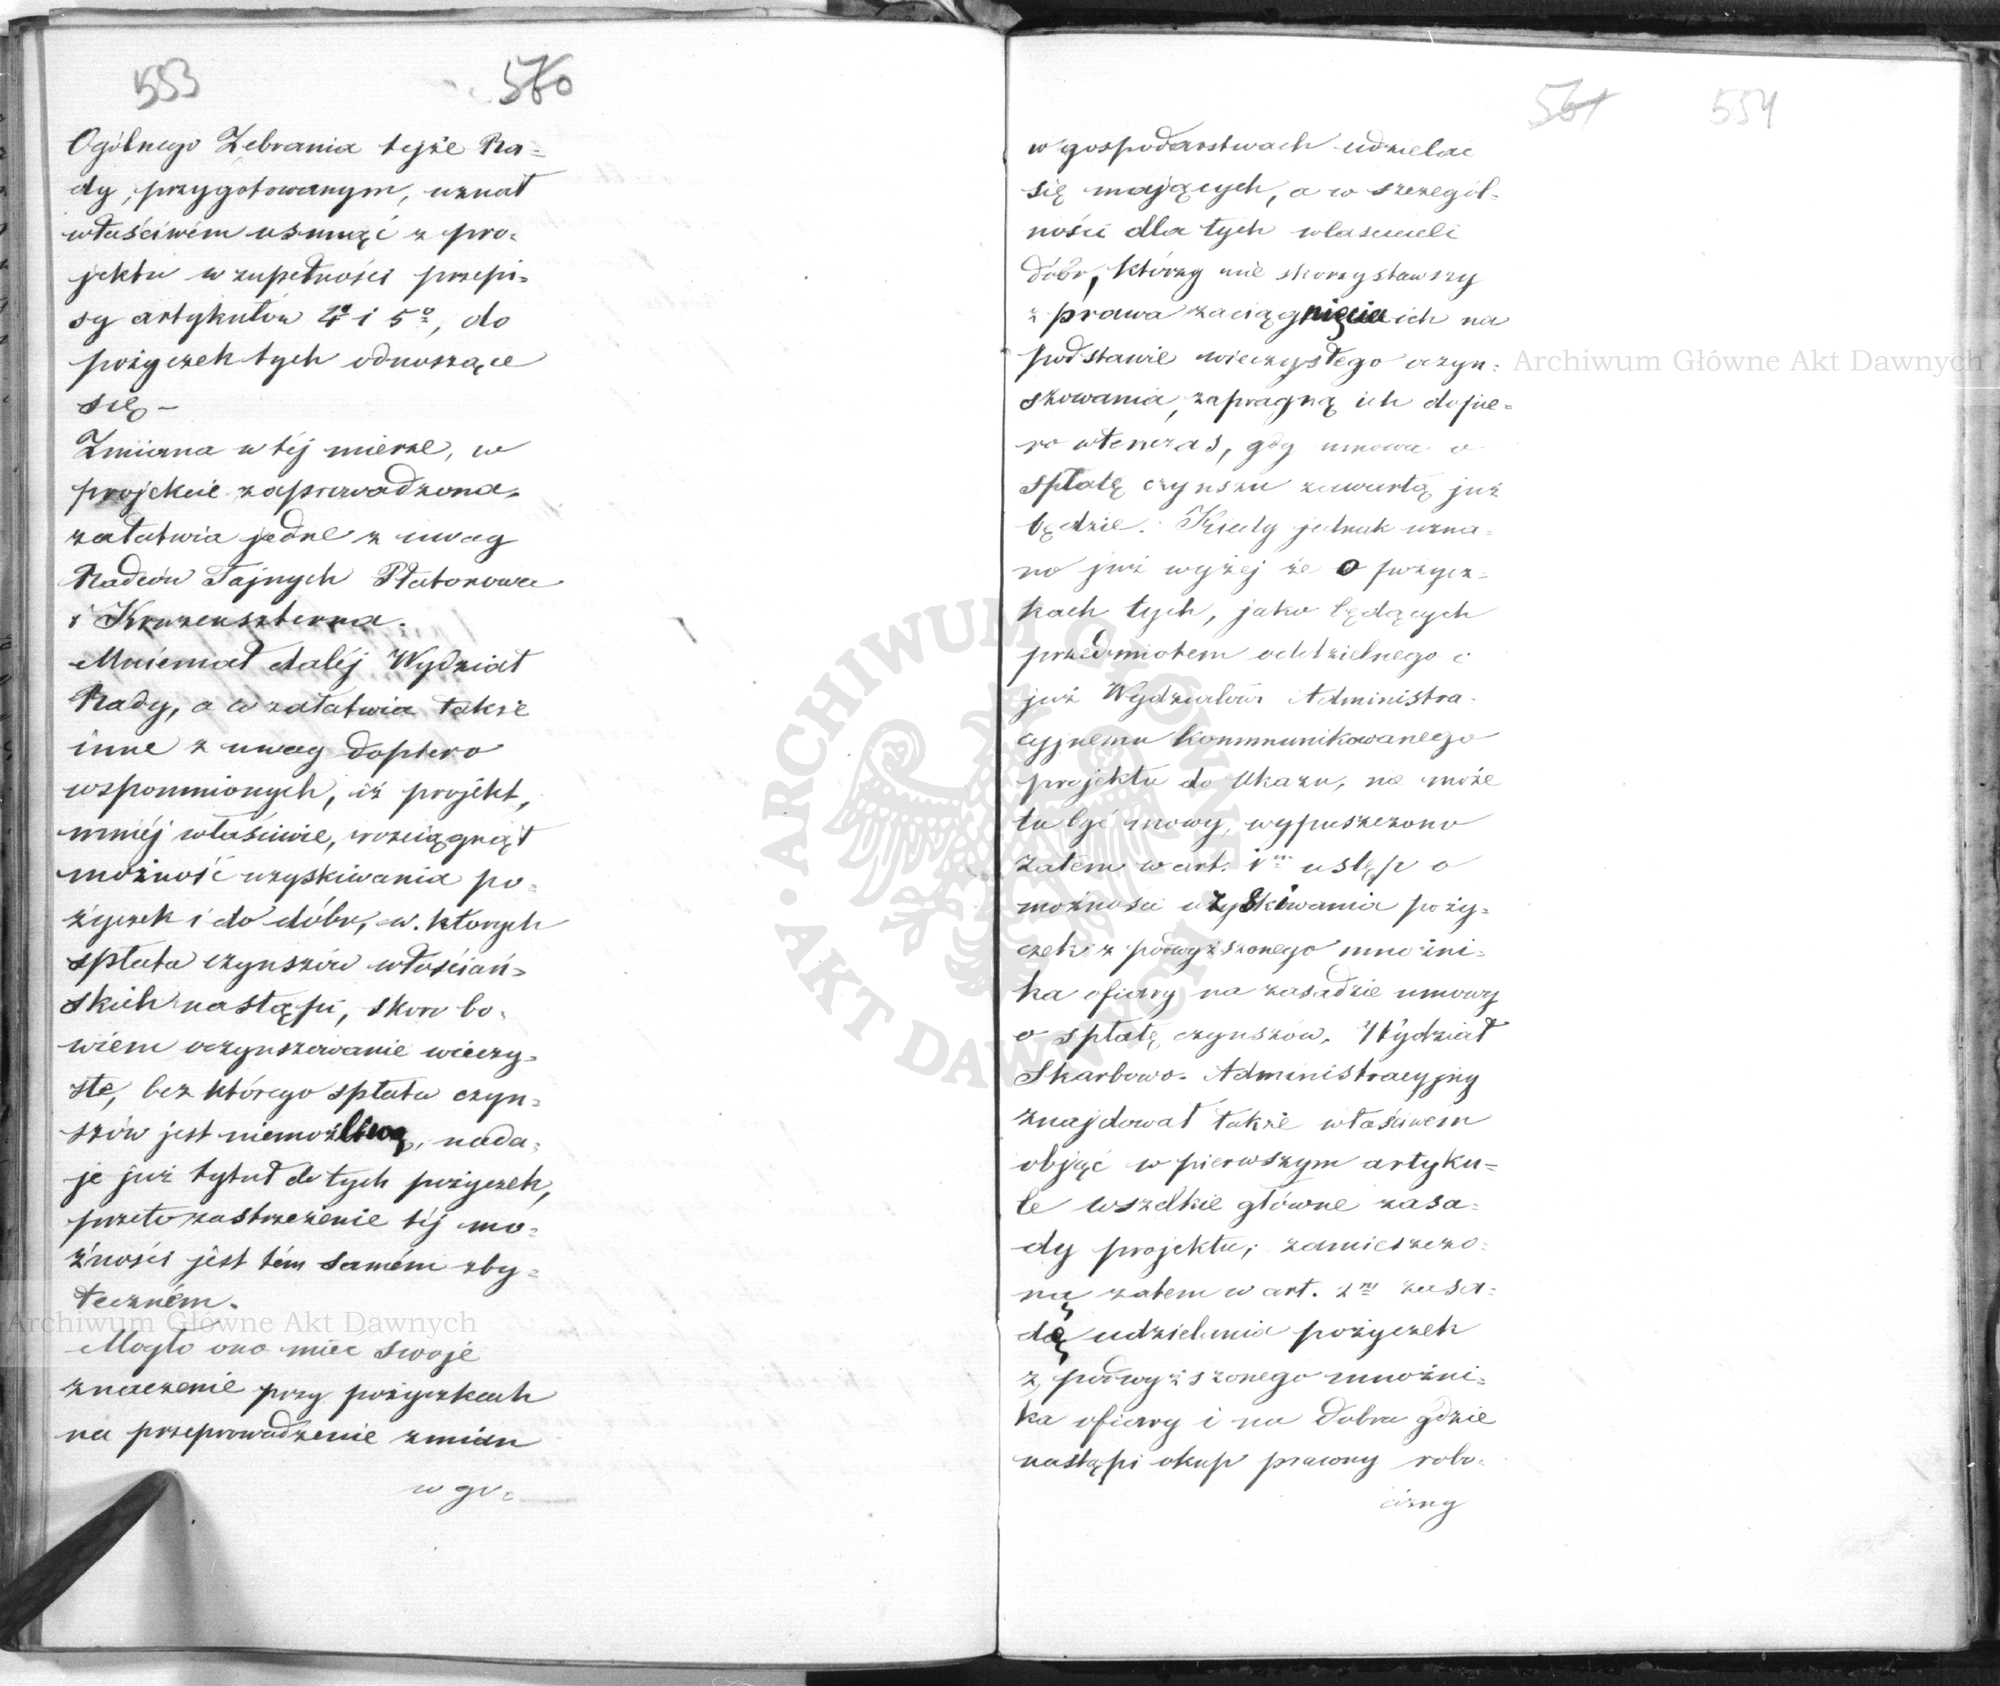 553
560
Ogólnego Zebrania tejże Ra=
dy, przygotowanym, uznał
właściwém usunąć z pro=
jektu w zupełności przepi=
sy artykułów 4º i 5º, do
pożyczek tych odnoszące
się –
Zmiana w téj mierze, w
projekcie zaprowadzona,
załatwia jedne z uwag
Radców Tajnych Płatonowa
i Kruzenszterna.
Mniemał daléj Wydział
Rady, a co załatwia także
inne z uwag dopiero
wspomnionych, iż projekt,
mniéj właściwie, rozciągnął
możność uzyskiwania po=
życzek i do dóbr, w których
spłata czynszów włościań=
skich nastąpi, skoro bo=
wiem oczynszowanie wieczy=
ste, bez którego spłata czyn=
szów jest niemożliwą, nada=
je już tytuł do tych pożyczek,
przeto zastrzeżenie téj mo=
żności jest tém samém zby=
teczném.
Mogło ono mieć swoje
znaczenie przy pożyczkach
na przeprowadzenie zmian
w go=
561
554
w gospodarstwach udzielać
się mających, a w szczegól=
ności dla tych właścicieli
dóbr, którzy nie skorzystawszy
z prawa zaciągnięcia ich na
podstawie wieczystego oczyn=
szowania, zapragną ich dopie=
ro wtenczas, gdy umowa o
spłatę czynszu zawartą już
będzie. Kiedy jednak uzna=
no już wyżej że o pożycz=
kach tych, jako będących
przedmiotem oddzielnego i
już Wydziałowi Administra=
cyjnemu kommunikowanego
projektu do Ukazu, nie może
tu być mowy, wypuszczono
zatém w art. 1m ustęp o
możności uzyskiwania poży=
czek z podwyższonego mnożni=
ka ofiary na zasadzie umowy
o spłatę czynszów. Wydział
Skarbowo-Administracyjny
znajdował także właściwém
objąć w pierwszym artyku=
le wszelkie główne zasa=
dy projektu; zamieszczo=
ną zatem w art. 2m zasa=
dę udzielenia pożyczek
z podwyższonego mnożni=
ka ofiary i na dobra gdzie
nastąpi okup prawny robo=
cizny
Archiwum Główne Akt Dawnych
Archiwum Główne Akt Dawnych
ARCHIWUM GŁÓWNE
AKT DAWNYCH